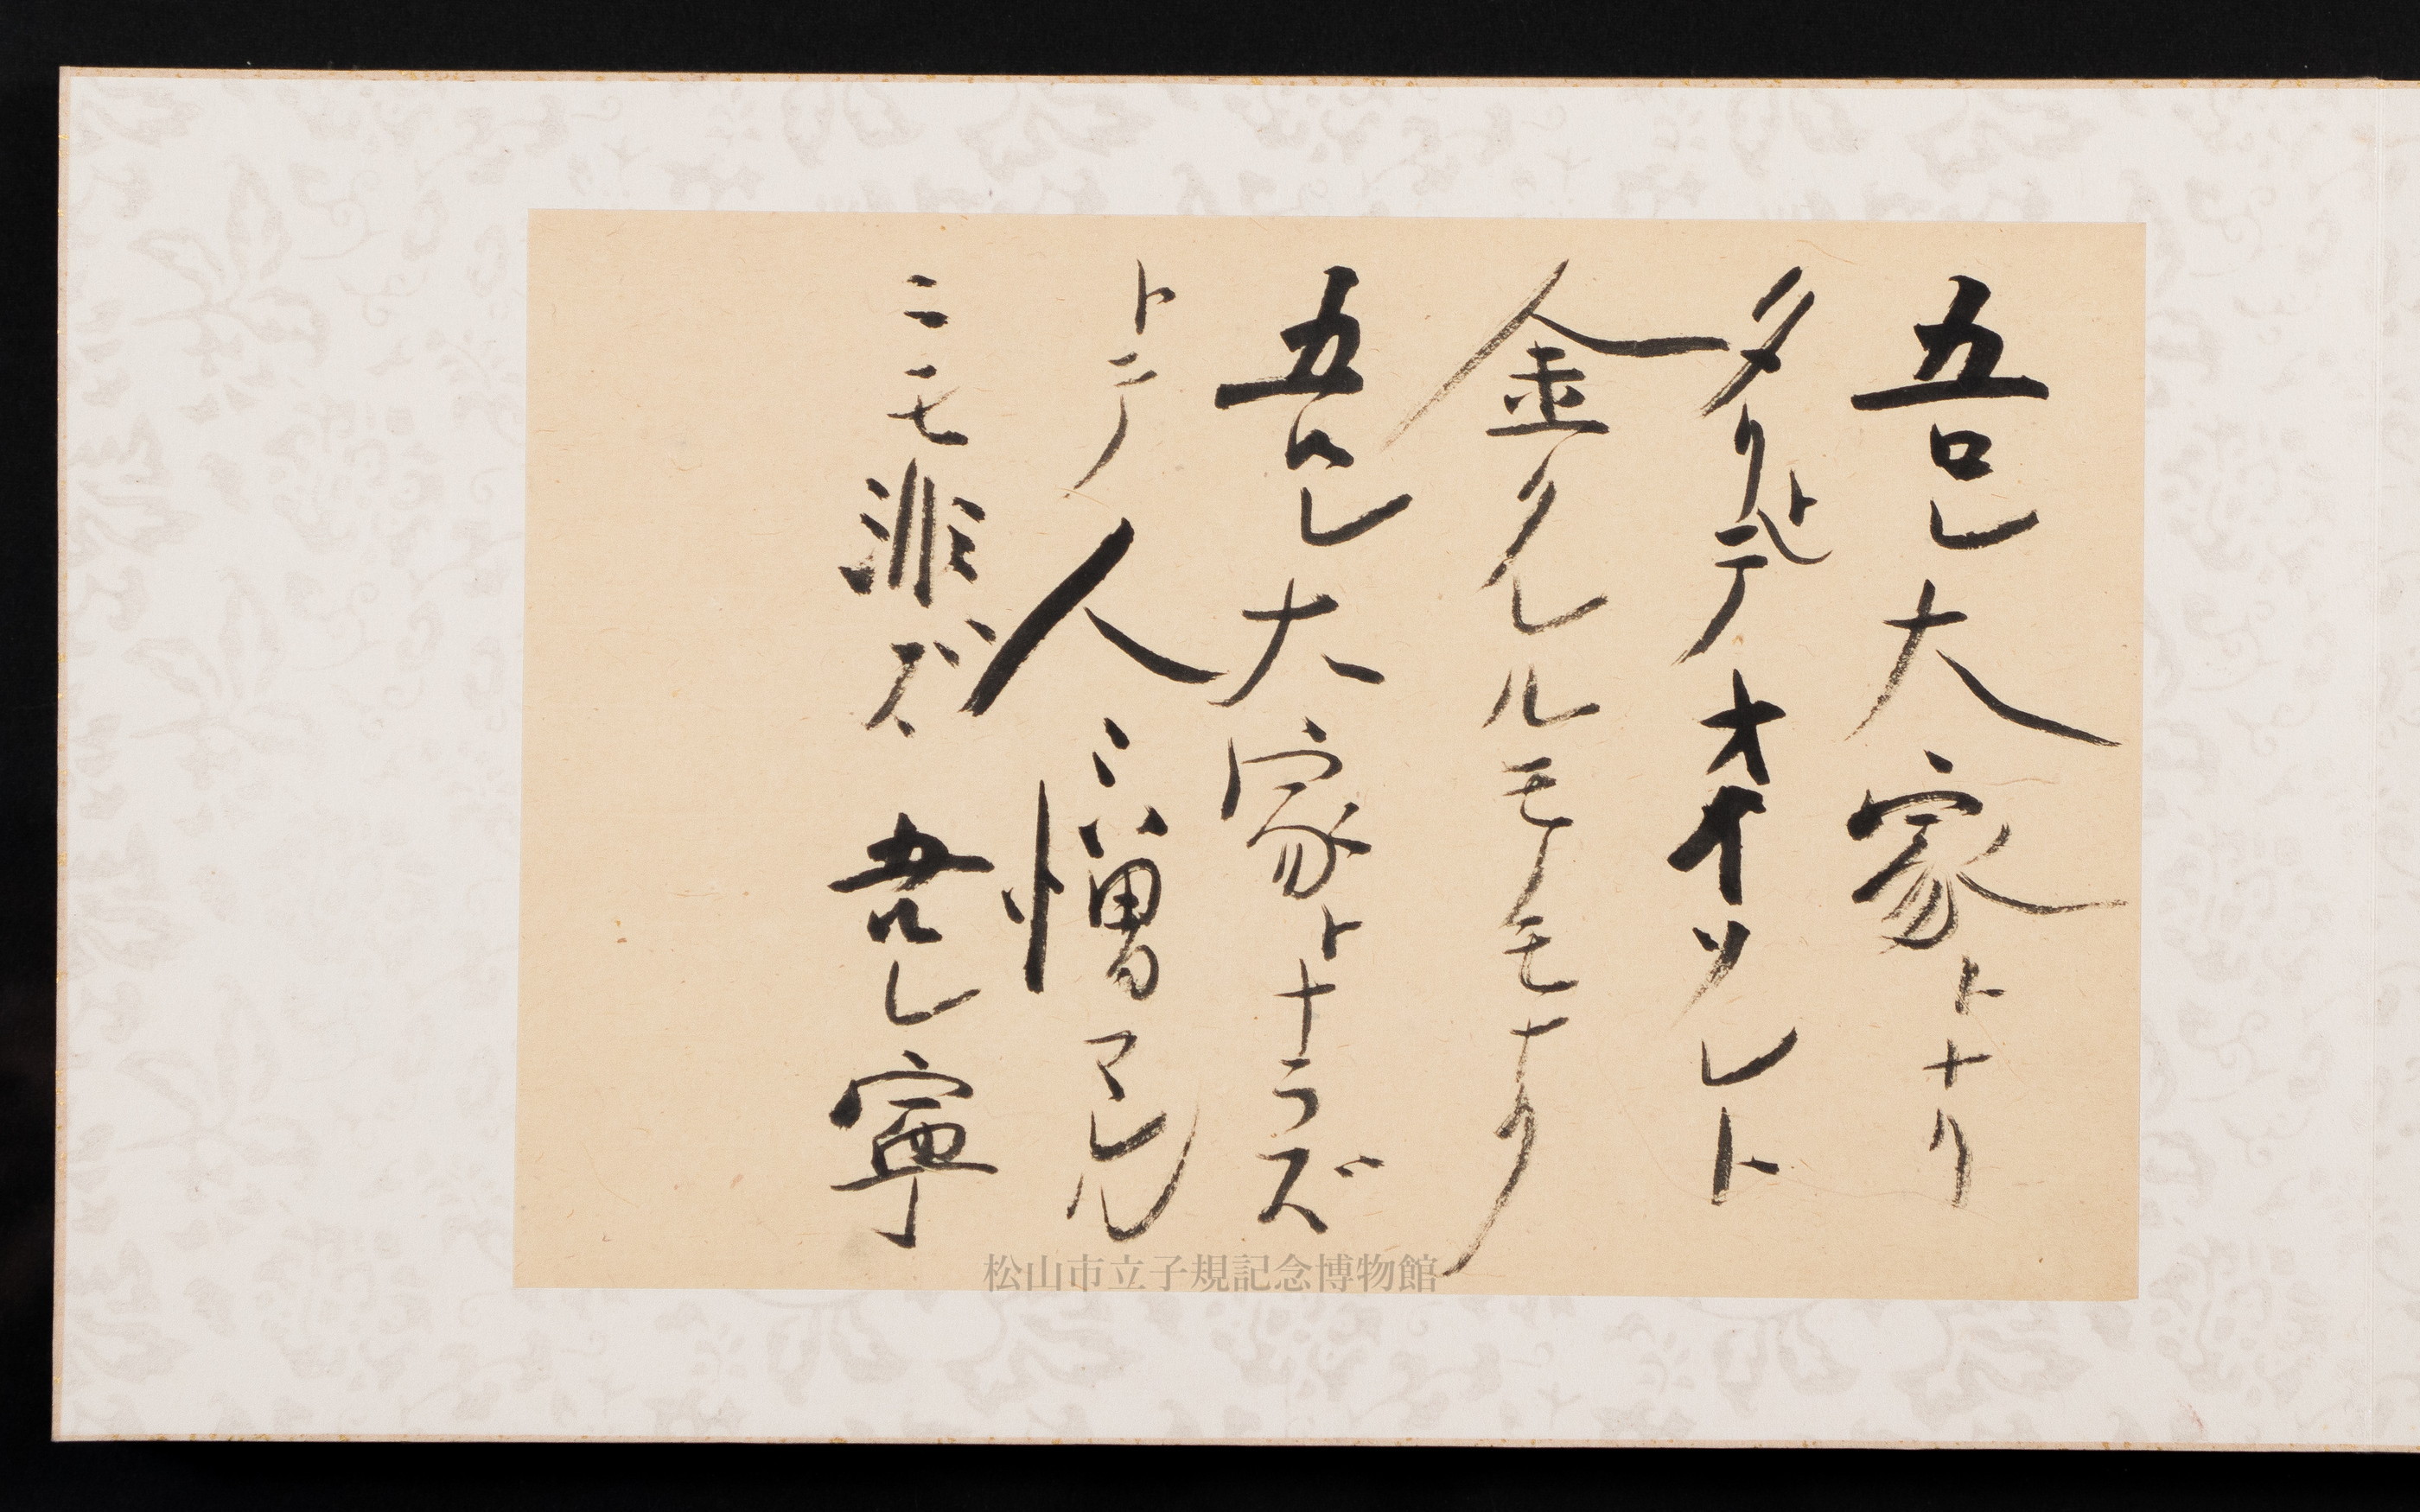 吾レ大家トナリ
タリトテオイソレト
金クレルモノモナク
吾レ大家トナラズ
トテ人ニ憎マレル
ニモ非ズ 吾レ寧
松山市立子規記念博物館